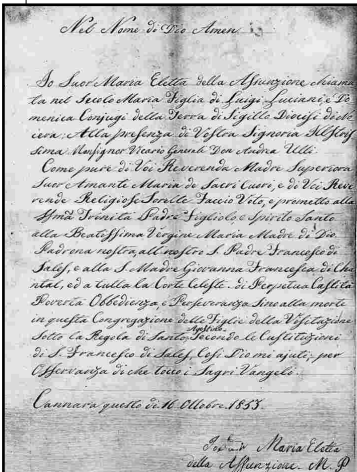 Nel Nome di Dio Amen.
Io Suor Maria Eletta della Assunzione chiama
ta nel Secolo Maria Figlia di Luigi Luciani, e Do
menica Conjugi della Terra di Sigillo Diocesi di No
cera: Alla presenza di Vostra Signoria Illstris
sima Monsignor Vicario Generale Don Andrea Ulli
Come pure di Voi Reverenda Madre Superiora
Suor Amante Maria de Sacri Cuori, e di Voi Reve
rende Religiose Sorelle Faccio Voto, e prometto alla
SSma Trinità Padre Figliolo, e Spirito Santo
alla Beatissima Vergine Maria Madre di Dio
Padrona nostra, all nostro S. Padre Francesco di
Sales, e alla S. Madre Giovanna Francesca di Chan
tal, ed a tutta la Corte Celeste. di Perpetua Castità
Povertà Obbedienza, e Perseveranza sino alla morte
in questa Congregazione delle Figlie della Visitazione
Sotto la Regola di Santo Agostino, Secondo le Custituzioni
di S. Francesco di Sales, Così Dio mi ajuti, per
Osservanza di che tocco i Sagri Vangeli.
Cannara questo dì 16 Ottobre 1857.
Maria Eletta
della Assunzione M. P.